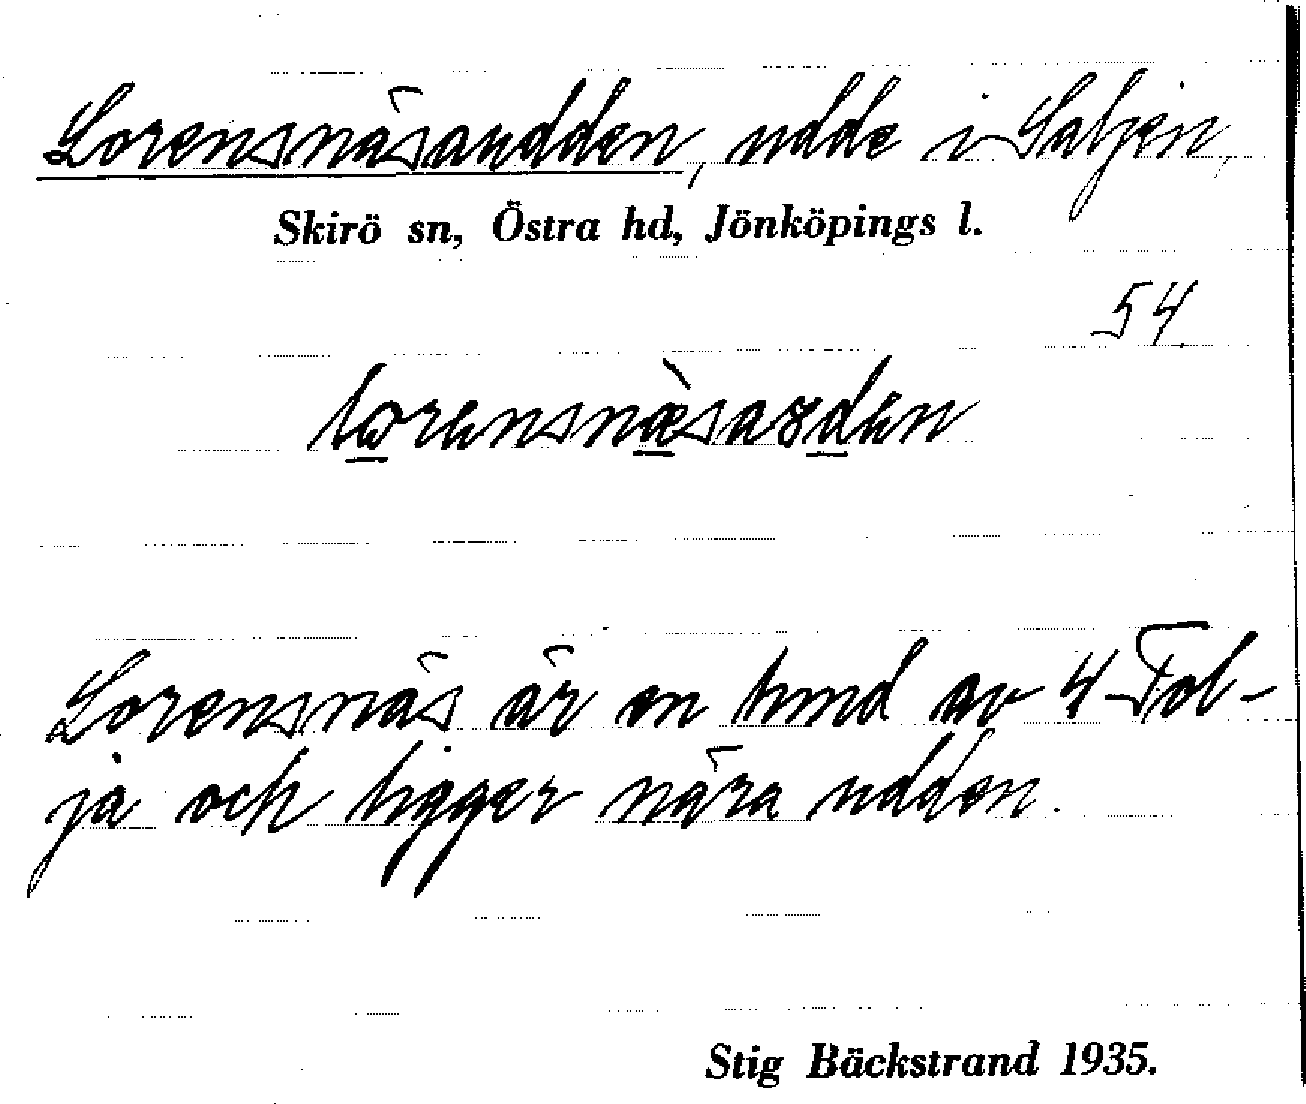 Lorensnäsaudden, udde i Saljen,
Skirö sn, Östra hd, Jönköpings l.
54
Lorensnäs är en lund av 4 Fol-
ja och ligger nära udden.
Stig Bäckstrand 1935.